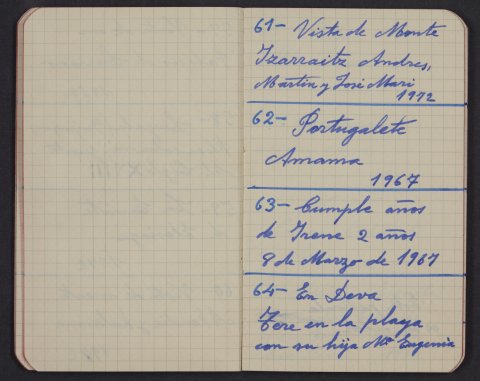 61- Vista de Monte
Izarraitz Andres,
Martin y José Mari
1972
62- Portugalete
Amama
1967
63- Cumple años
de Irene 2 años
8 de Marzo de 1967
64- En Deva
Tere en la playa
con su hija Mª Eugenia